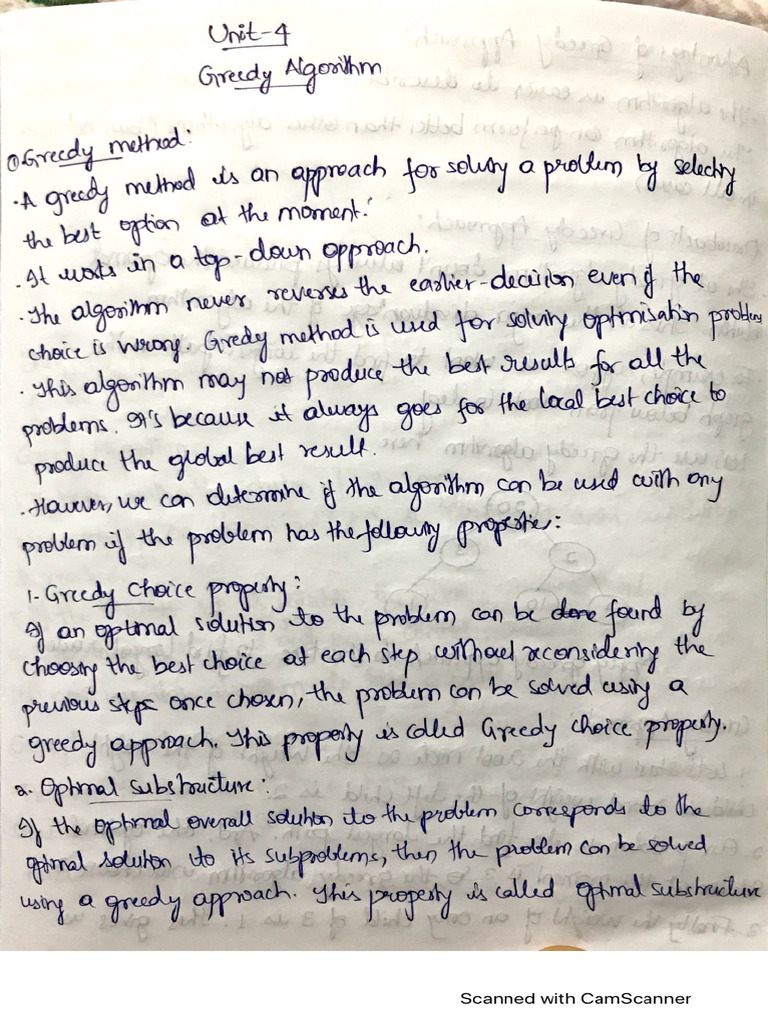 Unit-4
Greedy Algorithm
① Greedy method:
· A greedy method is an approach for solving a problem by selecting
the best option at the moment.
· It works in a top-down approach.
· The algorithm never reverses the earlier-decision even if the
choice is wrong. Gredy method is used for solving optimisatin problems
· This algorithm may not produce the best results for all the
problems. It's because it always goes for the local best choice to
produce the global best result.
· However, we can determine if the algorithm can be used with any
problem if the problem has the following properties:
1- Greedy Choice property:
If an optimal solution to the problem can be done found by
choosing the best choice at each step without reconsidering the
previous steps once chosen, the problem can be solved using a
greedy approach. This property is called Greedy choice property.
2. Optimal substructure:
If the optimal overall solution to the problem corresponds to the
optimal solution to its subproblems, then the problem can be solved
using a greedy approach. This property is called optimal substructure
Scanned with CamScanner